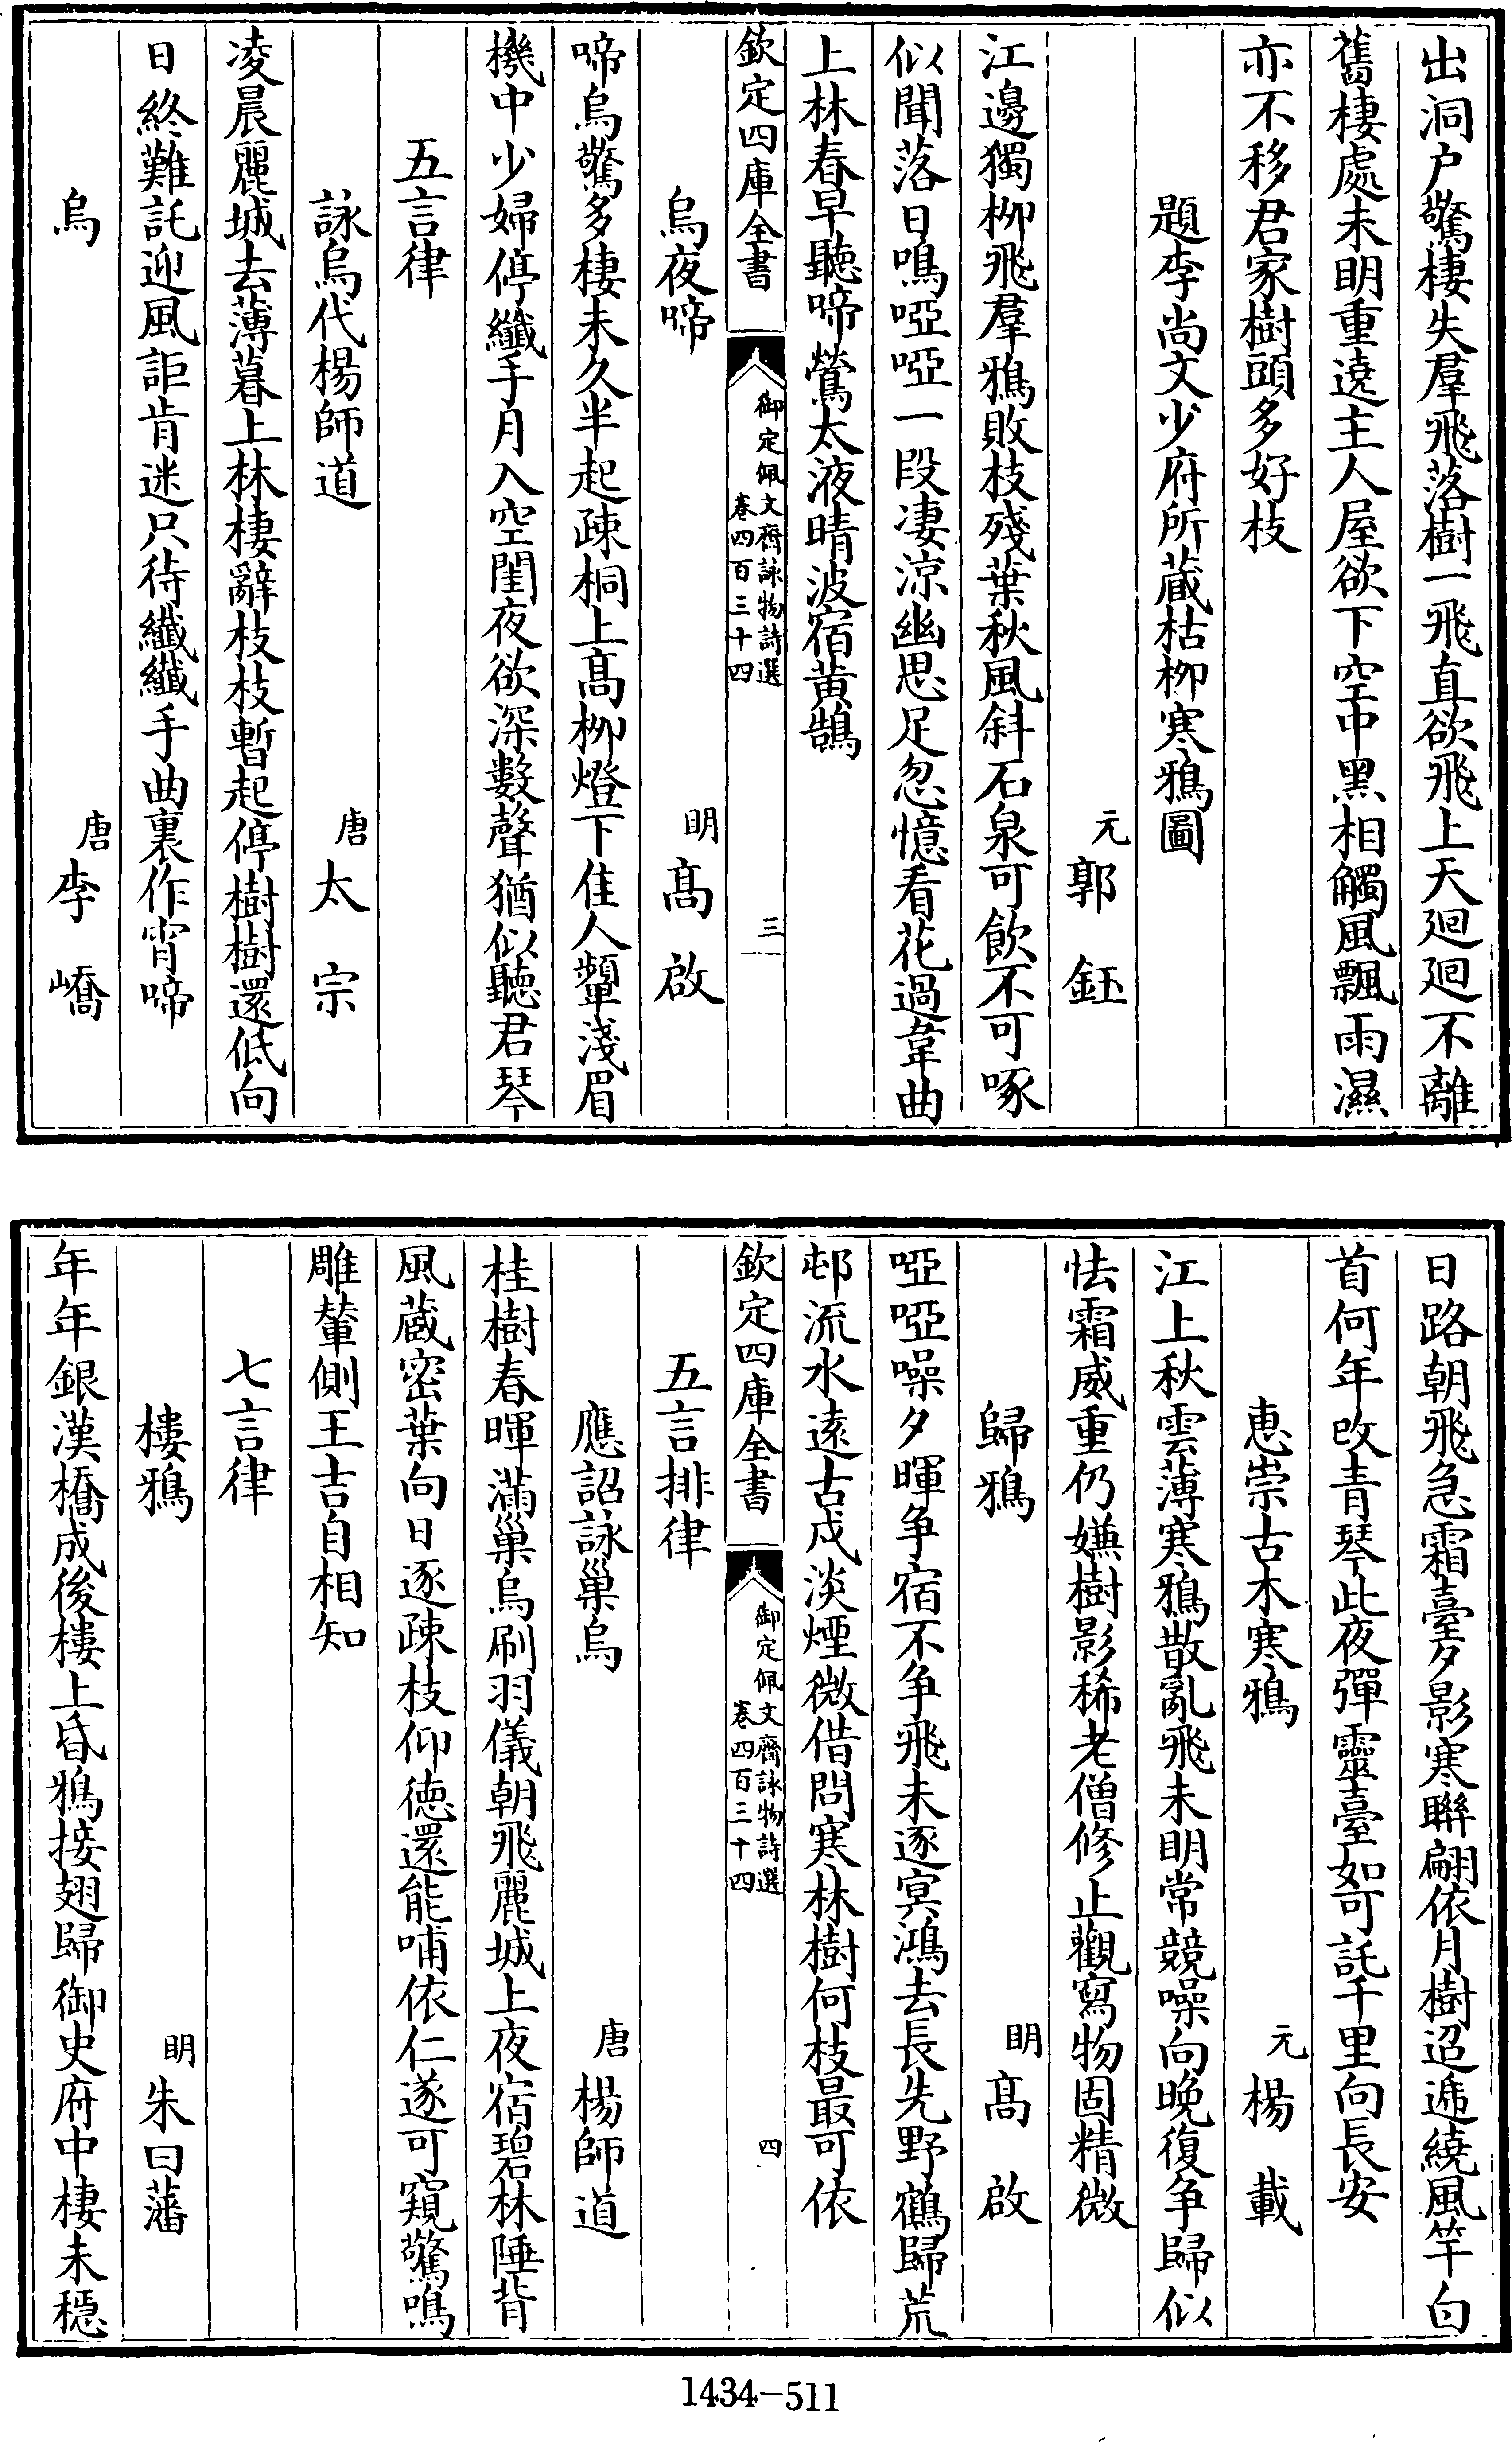 出洞户驚棲失羣飛落樹一飛直欲飛上天廻廻不離
舊棲處未明重遶主人屋欲下空中黑相觸風飄雨濕
亦不移君家樹頭多好枝
題李尚文少府所蔵枯柳寒鴉圖
元郭鈺
江邊獨柳飛羣鴉敗枝殘葉秋風斜石泉可飲不可啄
似聞落日鳴啞啞一段凄涼幽思足忽憶看花過韋曲
上林春早聽啼鶯太液晴波宿黄鵠
欽定四庫全書
御定佩文齋詠物詩選
卷四百三十四
三
烏夜啼
明髙啟
啼烏驚多棲未久半起疎桐上髙柳燈下佳人顰淺眉
機中少婦停纖手月入空閨夜欲深數聲猶似聽君琴
五言律
詠烏代楊師道
唐太宗
凌晨麗城去薄暮上林棲辭枝枝暫起停樹樹還低向
日終難託迎風詎肯迷只待纖纖手曲裏作宵啼
烏
唐李嶠
日路朝飛急霜臺夕影寒聯翩依月樹迢遞繞風竿白
首何年改青琴此夜彈靈臺如可託千里向長安
惠崇古木寒鴉
元楊載
江上秋雲薄寒鴉散亂飛未明常競噪向晚復争歸似
怯霜威重仍嫌樹影稀老僧修止觀寫物固精微
歸鴉
明髙啟
啞啞噪夕暉争宿不争飛未逐冥鴻去長先野鶴歸荒
邨流水遠古戍淡煙微借問寒林樹何枝最可依
欽定四庫全書
御定佩文齋詠物詩選
卷四百三十四
四
五言排律
應詔詠巢烏
唐楊師道
桂樹春暉滿巢烏刷羽儀朝飛麗城上夜宿碧林陲背
風蔵密葉向日逐疎枝仰徳還能哺依仁遂可窺驚鳴
雕輦側王吉自相知
七言律
樓鴉
明朱曰藩
年年銀漢橋成後樓上昏鴉接翅歸御史府中棲未穏
1434-511